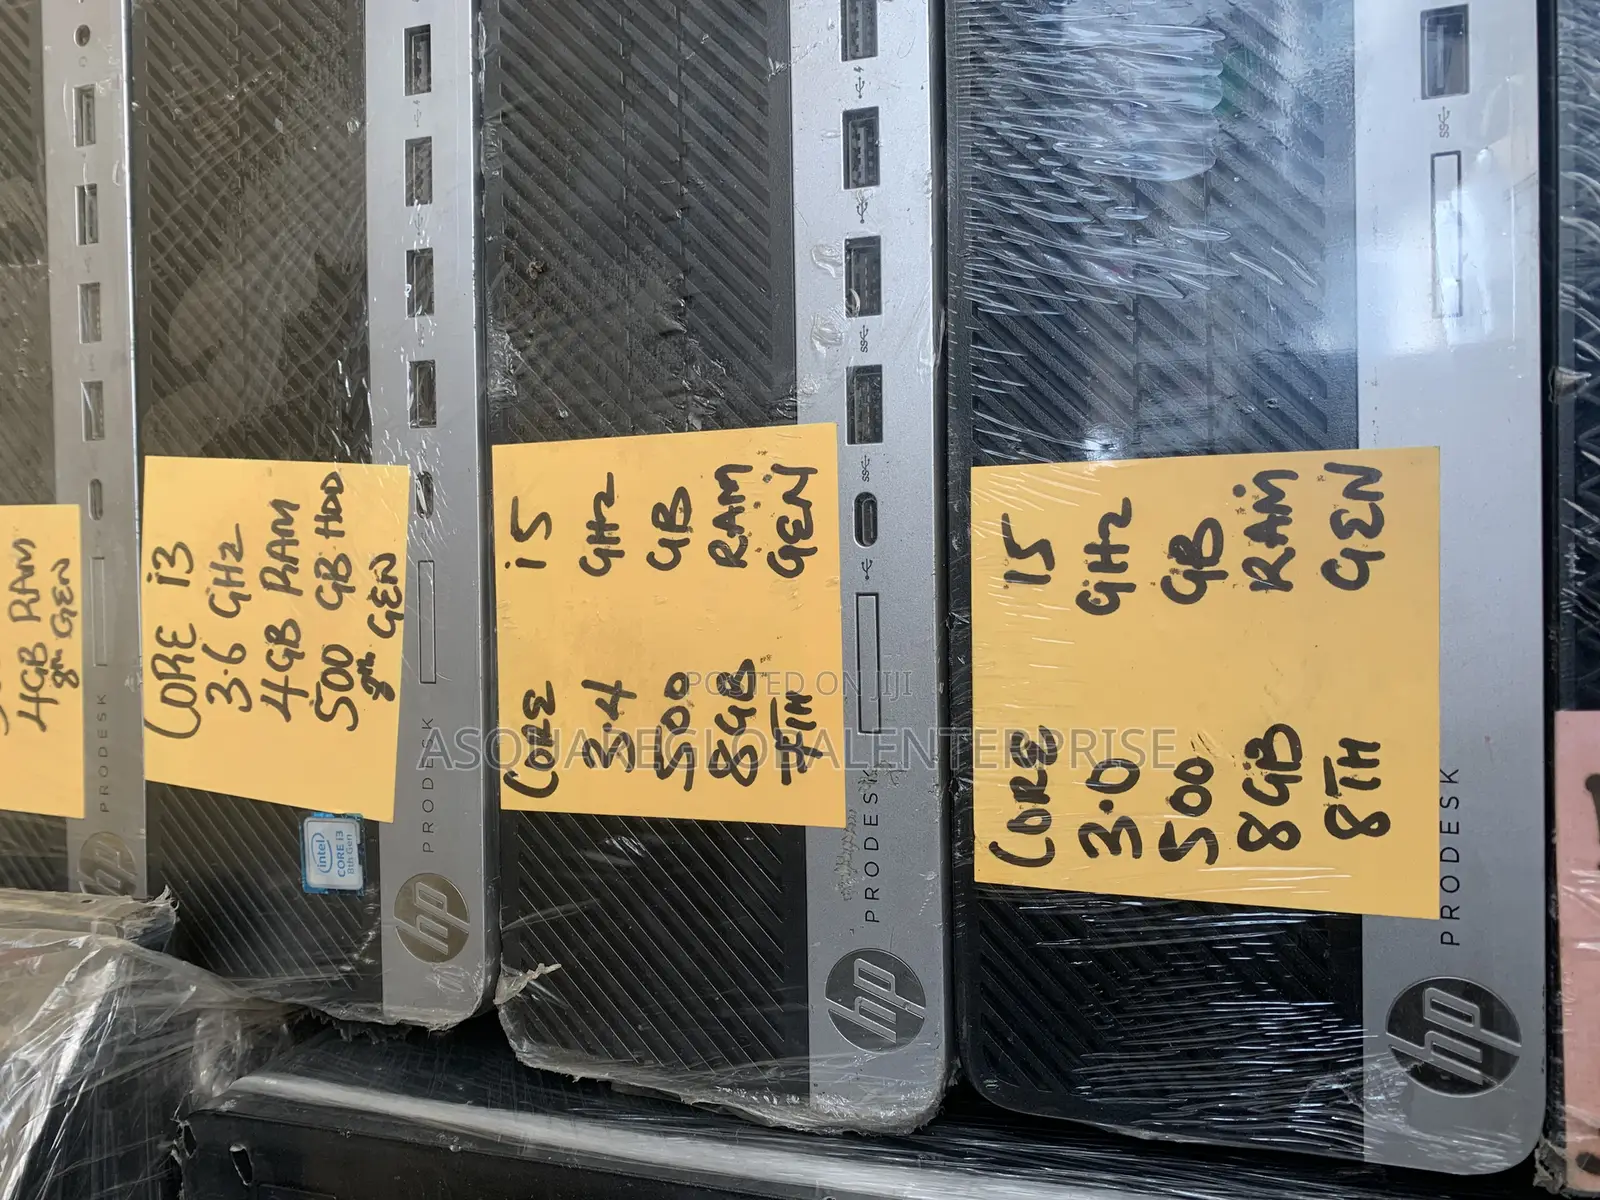 4GB RAM
8TH GEN
PRODESK
hp
CORE i3
3.6 GHz
4GB RAM
500 GB HDD
8TH GEN
intel
CORE i3
8th Gen
PRODESK
hp
CORE i5
3.4 GHz
500 GB
8GB RAM
7TH GEN
PRODESK
hp
CORE i5
3.0 GHz
500 GB
8GB RAM
8TH GEN
PRODESK
hp
POSTED ON JIJI
ASQUAREGLOBALENTERPRISE